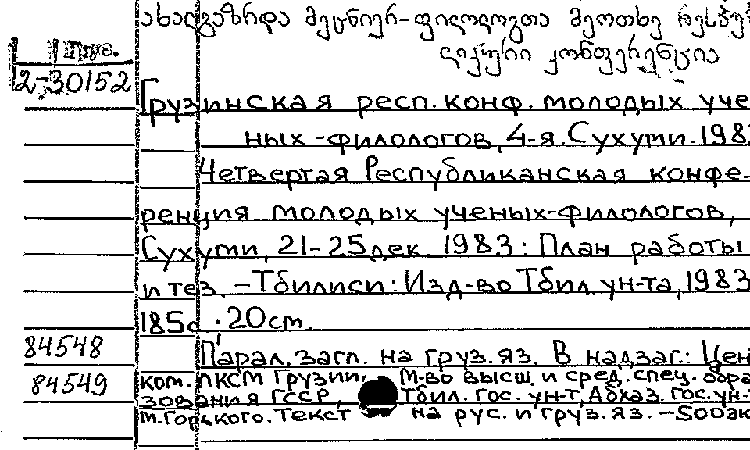 ახალგაზრდა მეცნიერ-ფილოლოგთა მეოთხე რესპუ
ლიკური კონფერენცია
2-30152
Грузинская респ. конф. молодых уче
ных-филологов, 4-я. Сухуми. 1983
Четвертая Республиканская конфе-
ренция молодых ученых-филологов,
Сухуми, 21-25 дек. 1983: План работы
и тез. - Тбилиси: Изд-во Тбил. ун-та, 1983
185с. 20см.
84548
Парал. загл. на груз. яз. В надзаг.: Цен
84549
ком. ЛКСМ Грузии, М-во высш. и сред. спец. обра
зования ГССР, Тбил. гос. ун-т, Абхаз. гос. ун-т
М. Горького. Текст на рус. и груз. яз. - 500эк